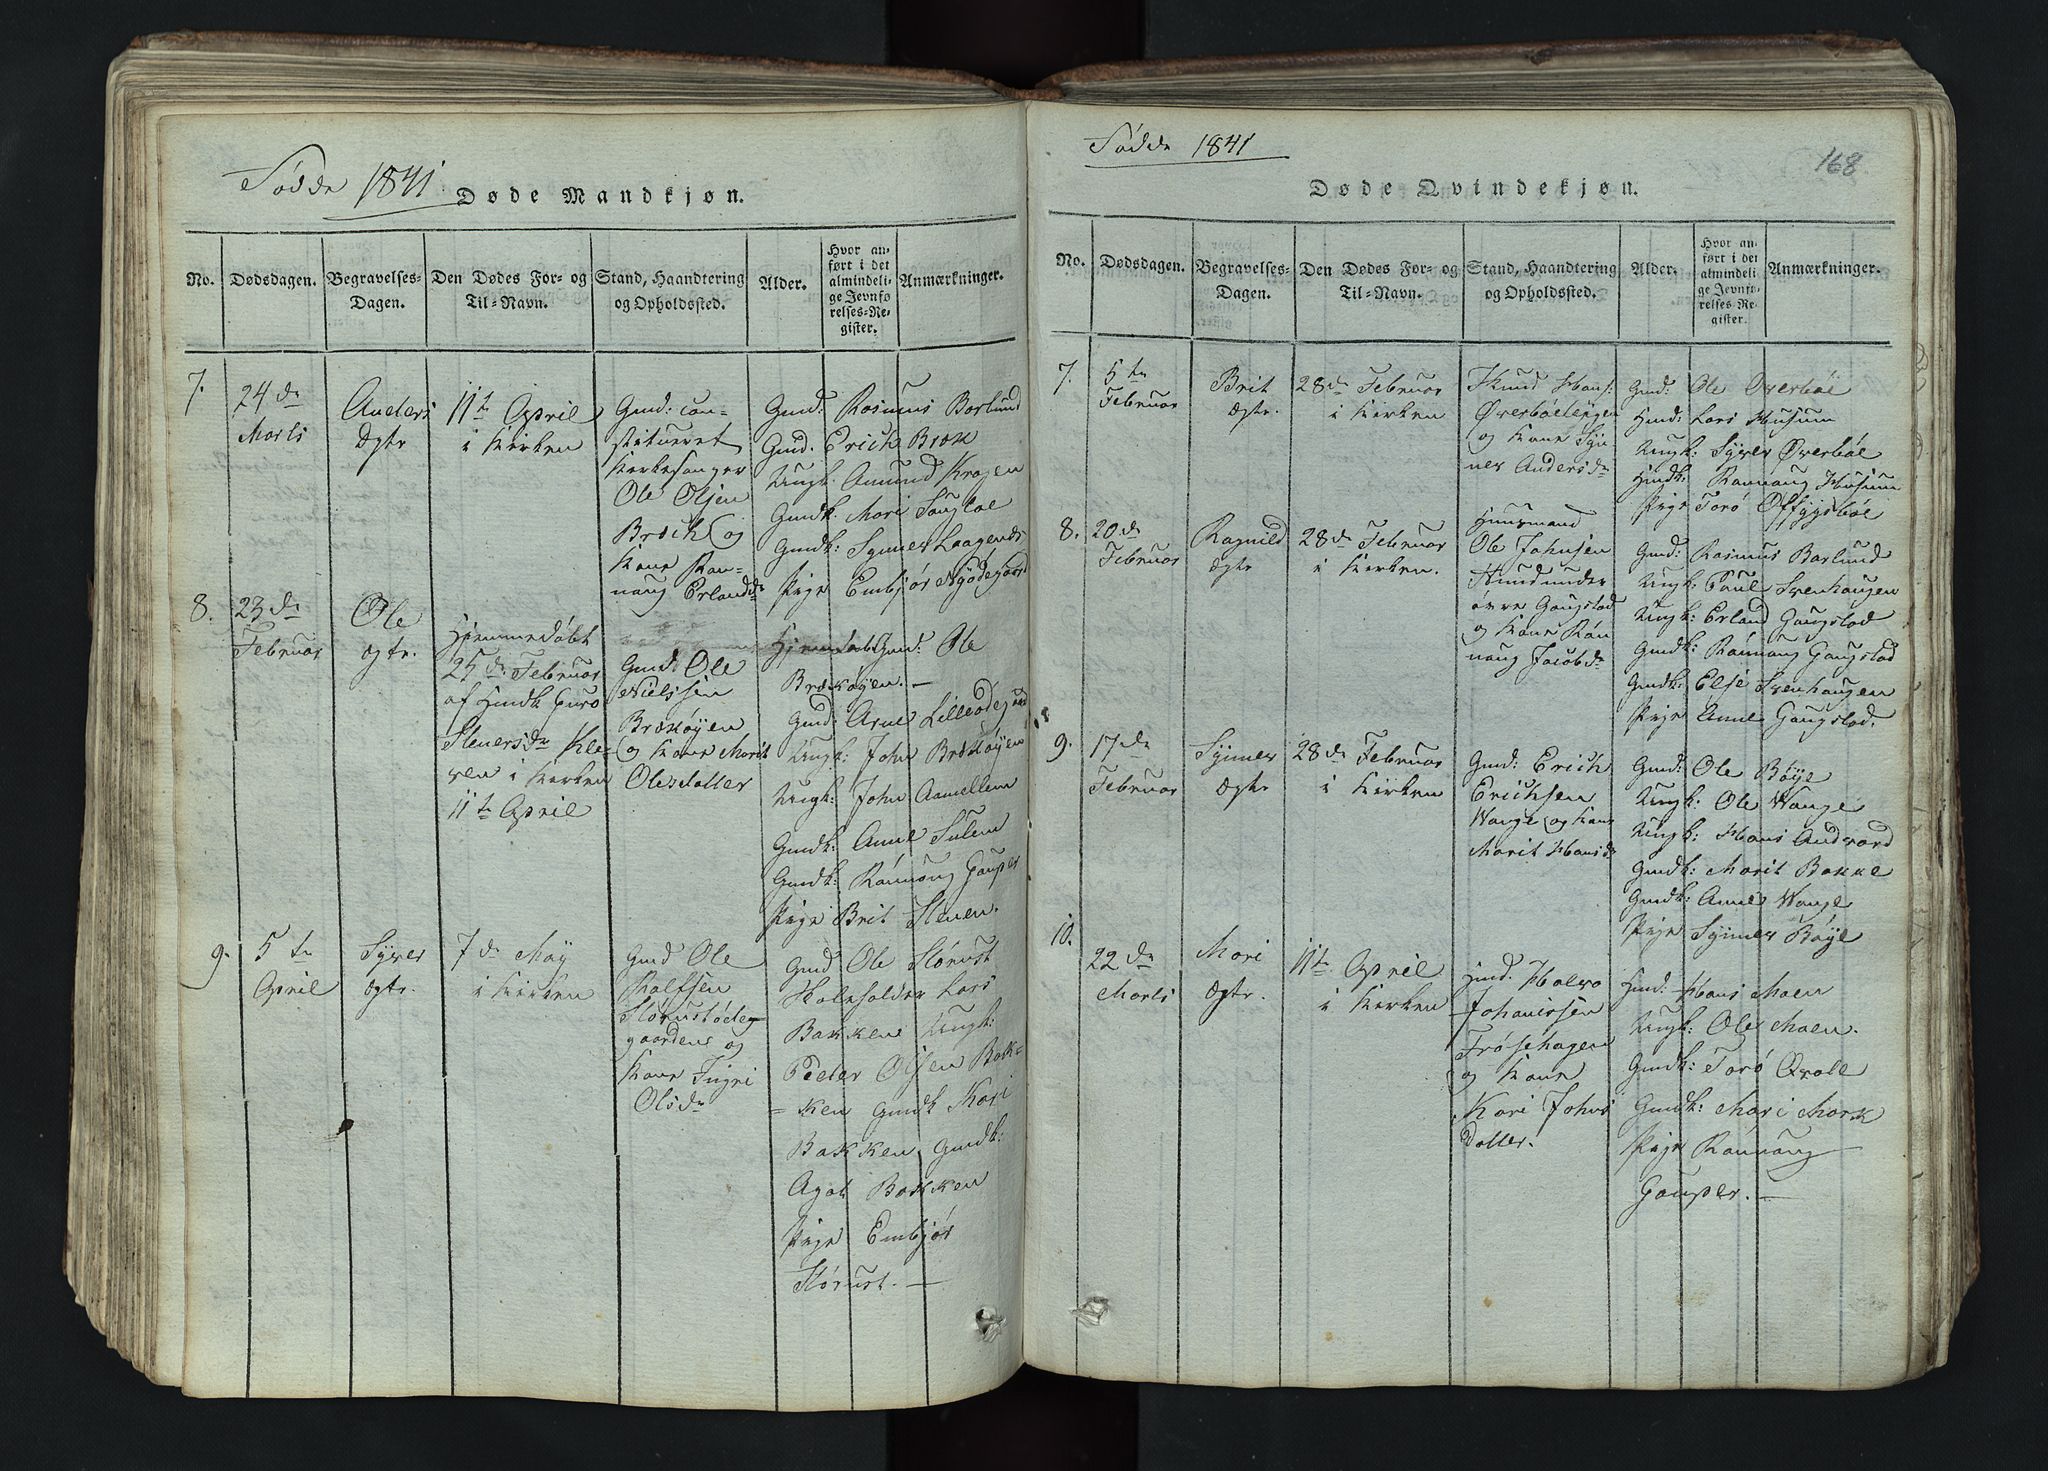 Fødde 1841
Døde Mandkjøn.
No.
Dødsdagen.
Begravelses-
Dagen.
Den Dødes For- og
Til-Navn.
Stand, Haandtering
og Opholdssted.
Alder.
Hvor an-
ført i det
almindeli-
ge Jevnfø
relses-Re-
gister.
Anmærkninger.
7.
24de
Marts
Anders
ægte
11te April
i Kirken
Gmd: con-
stitueret
Kirkesanger
Ole Olsen
Bræk og
Kone Ran-
naug Erlandsd
Gmd: Rasmus Borlund
Gmd. Erich Bræk
Ungk. Amund Kragen
Gmdk. Mari
Gmdk: Synnev
Pige Embjør
8.
23de
Februar
Ole
ægte.
Hjemmedøbt
25de Februar
af Hmdk Guro
Steversdr Kle-
ven i Kirken
11te April
Gmd: Ole
Nielssen
Brækøyen
og Kone Marit
Olesdatter
Gmd: Ole
Brækøyen. —
Gmd: Arne Lilleødegaard
Ungk: John Brækøyen
Ungk: John Aamellem
Gmdk: Anne Sulem
Gmdk: Rannaug Gauper
Pige Brit Steuen.
9.
5te
April
Syver
ægte.
7de May
i Kirken
Gmd Ole
Rolfsen
Storustødeg
gaardens og
Kone Ingri
Olsdr
Gmd Ole Storust
Lars
Bakken Ungk:
Peder Olsen Bak=
=ken Gmdk Mari
Bakken, Gmdk:
Agot Bakken
Pige Embjør
Storust. —
Fødde 1841
168.
Døde Qvindekjøn.
No.
Dødsdagen.
Begravelses-
Dagen.
Den Dødes For- og
Til-Navn.
Stand, Haandtering
og Opholdssted.
Alder.
Hvor an-
ført i det
almindeli-
ge Jevnfø-
relses-Re-
gister.
Anmærkninger.
7.
5te
Februar
Brit
ægte.
28de Februar
i Kirken
Knud Hans:
Øverbøelien
og Kone Syn
nev Andersdr
Gmd: Ole Øverbøe
Hmd: Lars Husum
Ungk: Syver Øverbøe
Hmdk: Rannaug Husum
Pige Torø Øffygsbøe
8.
20de
Februar
Ragnild
ægte
28de Februar
i Kirken.
Huusmand
Ole Johnsen
øvre Gaugstad
og Kone Ran
naug Jacobdr
Gmd: Rasmus Barlund
Ungk: Poul Svenhaugen
Ungk: Erland Gaugstad
Gmdk: Rannaug Gaugstad
Gmdk: Else Svenhaugen
Pige Anne Gaugstad.
9.
17de
Februar
Synnev
ægte
28de Februar
i Kirken
Gmd: Erich
Erichsen
Wange og Kone
Marit Hansdr
Gmd: Ole Bøye
Ungk: Ole Wange
Ungk: Hans Andvord
Gmdk: Marit Bakke
Gmdk: Anne Wange
Pige Synnev Bøye
10.
22de
Marts
Mari
ægte.
11te April
i Kirken
Hmd. Halvo
Johanissen
Frøsehagen
og Kone
Kari Johns
datter.
Hmd: Hans Moen
Ungk: Ole Moen.
Gmdk: Torø Qvale
Gmdk: Mari Mork
Pige Rannaug
Gauper. —